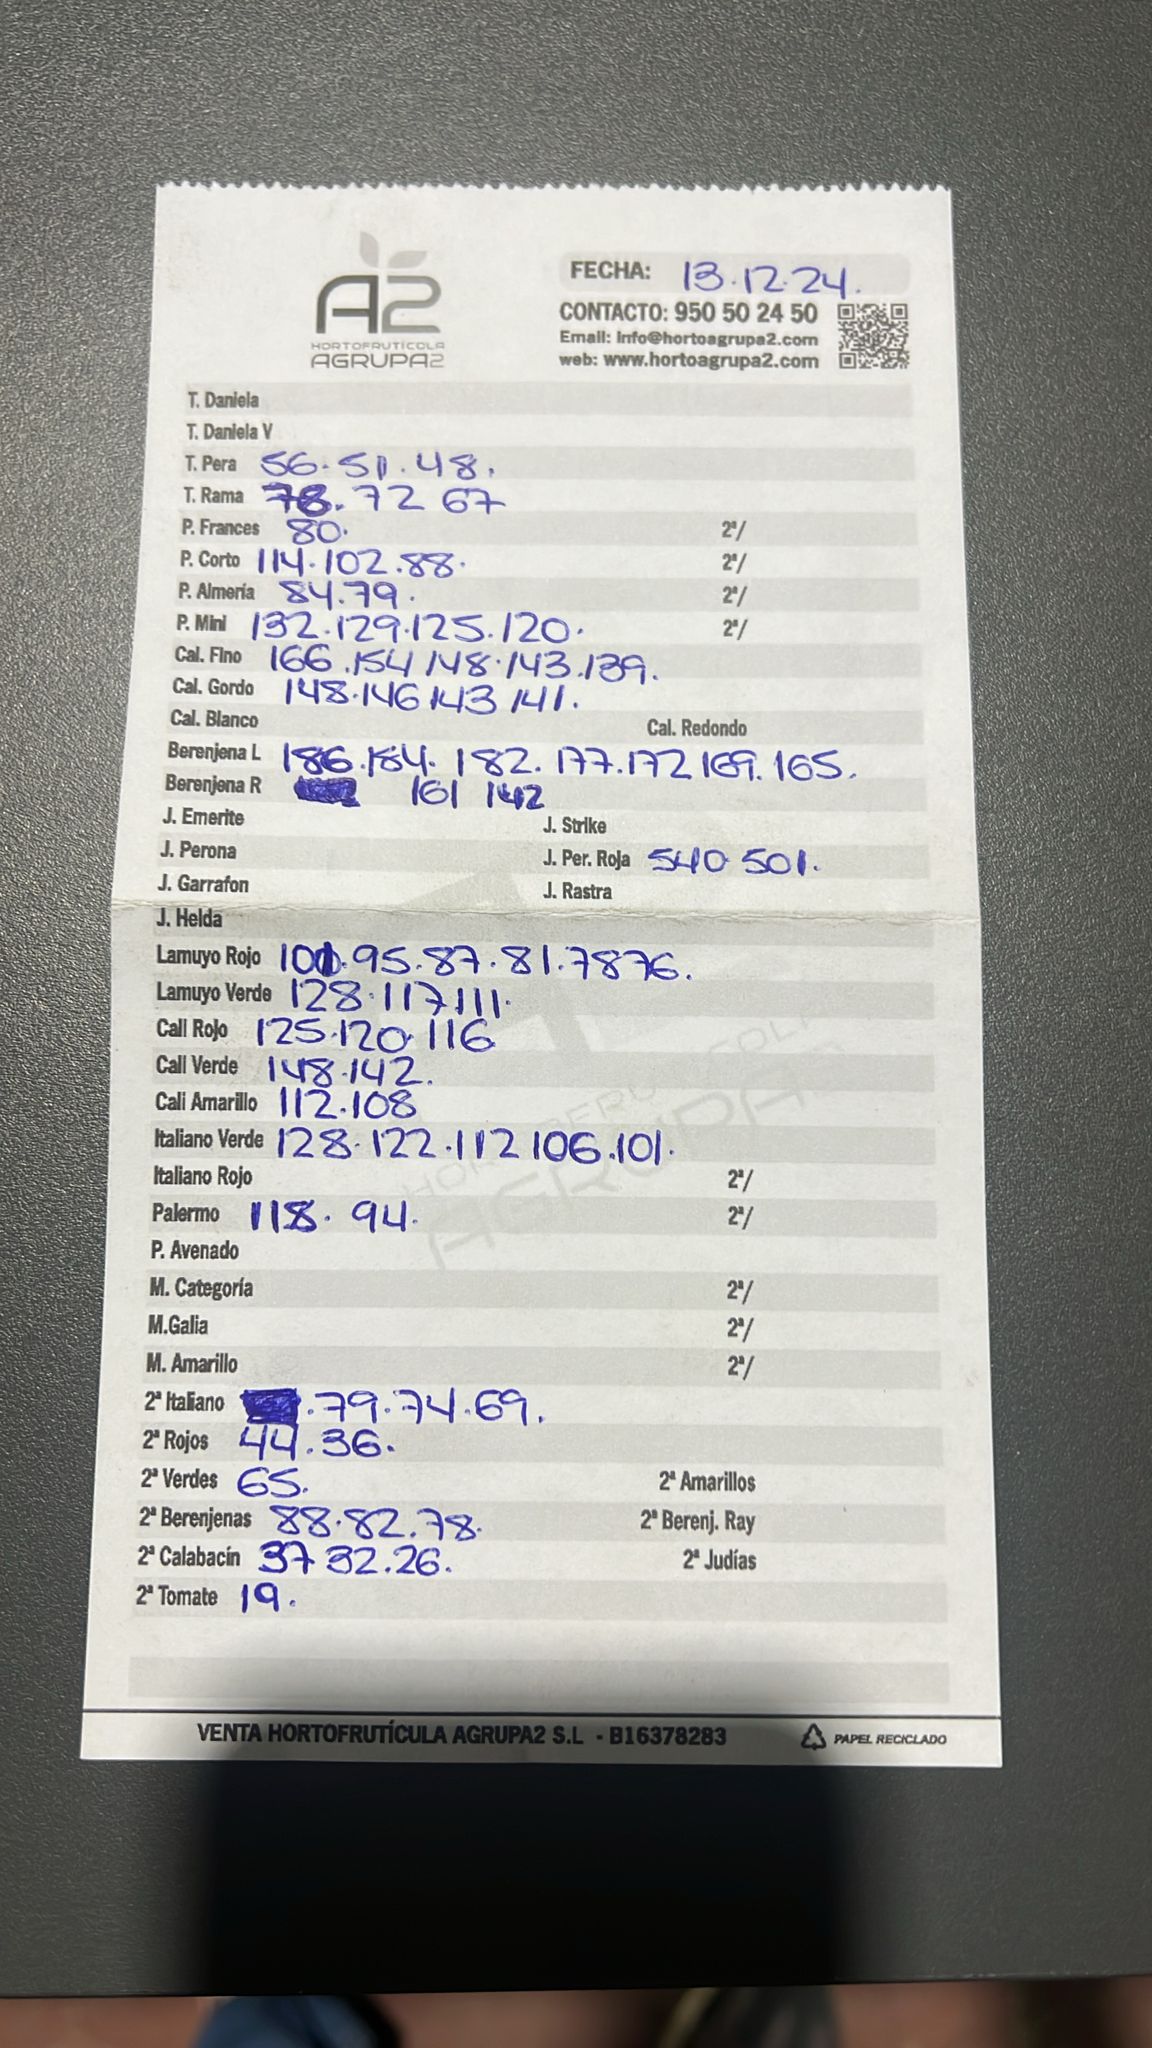 A2
HORTOFRUTÍCOLA
AGRUPA2
FECHA: 13.12.24.
CONTACTO: 950 50 24 50
Email: info@hortoagrupa2.com
web: www.hortoagrupa2.com
T. Daniela
T. Daniela V
T. Pera 56. 51. 48.
T. Rama 78. 72 67
P. Frances 80. 2ª/
P. Corto 114.102.88. 2ª/
P. Almería 84.79. 2ª/
P. Mini 132.129.125.120. 2ª/
Cal. Fino 166.154 148.143.139.
Cal. Gordo 148.146 143 141.
Cal. Blanco Cal. Redondo
Berenjena L 186.184. 182. 177.172 169. 165.
Berenjena R 161 142
J. Emerite J. Strike
J. Perona J. Per. Roja 540 501.
J. Garrafon J. Rastra
J. Helda
Lamuyo Rojo 101.95.87.81.78 76.
Lamuyo Verde 128.117.111.
Cali Rojo 125.120 116
Cali Verde 148.142.
Cali Amarillo 112.108
Italiano Verde 128.122.112 106.101.
Italiano Rojo 2ª/
Palermo 118. 94. 2ª/
P. Avenado
M. Categoría 2ª/
M.Galia 2ª/
M. Amarillo 2ª/
2ª Italiano .79.74.69.
2ª Rojos 44.36.
2ª Verdes 65. 2ª Amarillos
2ª Berenjenas 88.82.78. 2ª Berenj. Ray
2ª Calabacín 37 32.26. 2ª Judías
2ª Tomate 19.
VENTA HORTOFRUTÍCULA AGRUPA2 S.L - B16378283 PAPEL RECICLADO